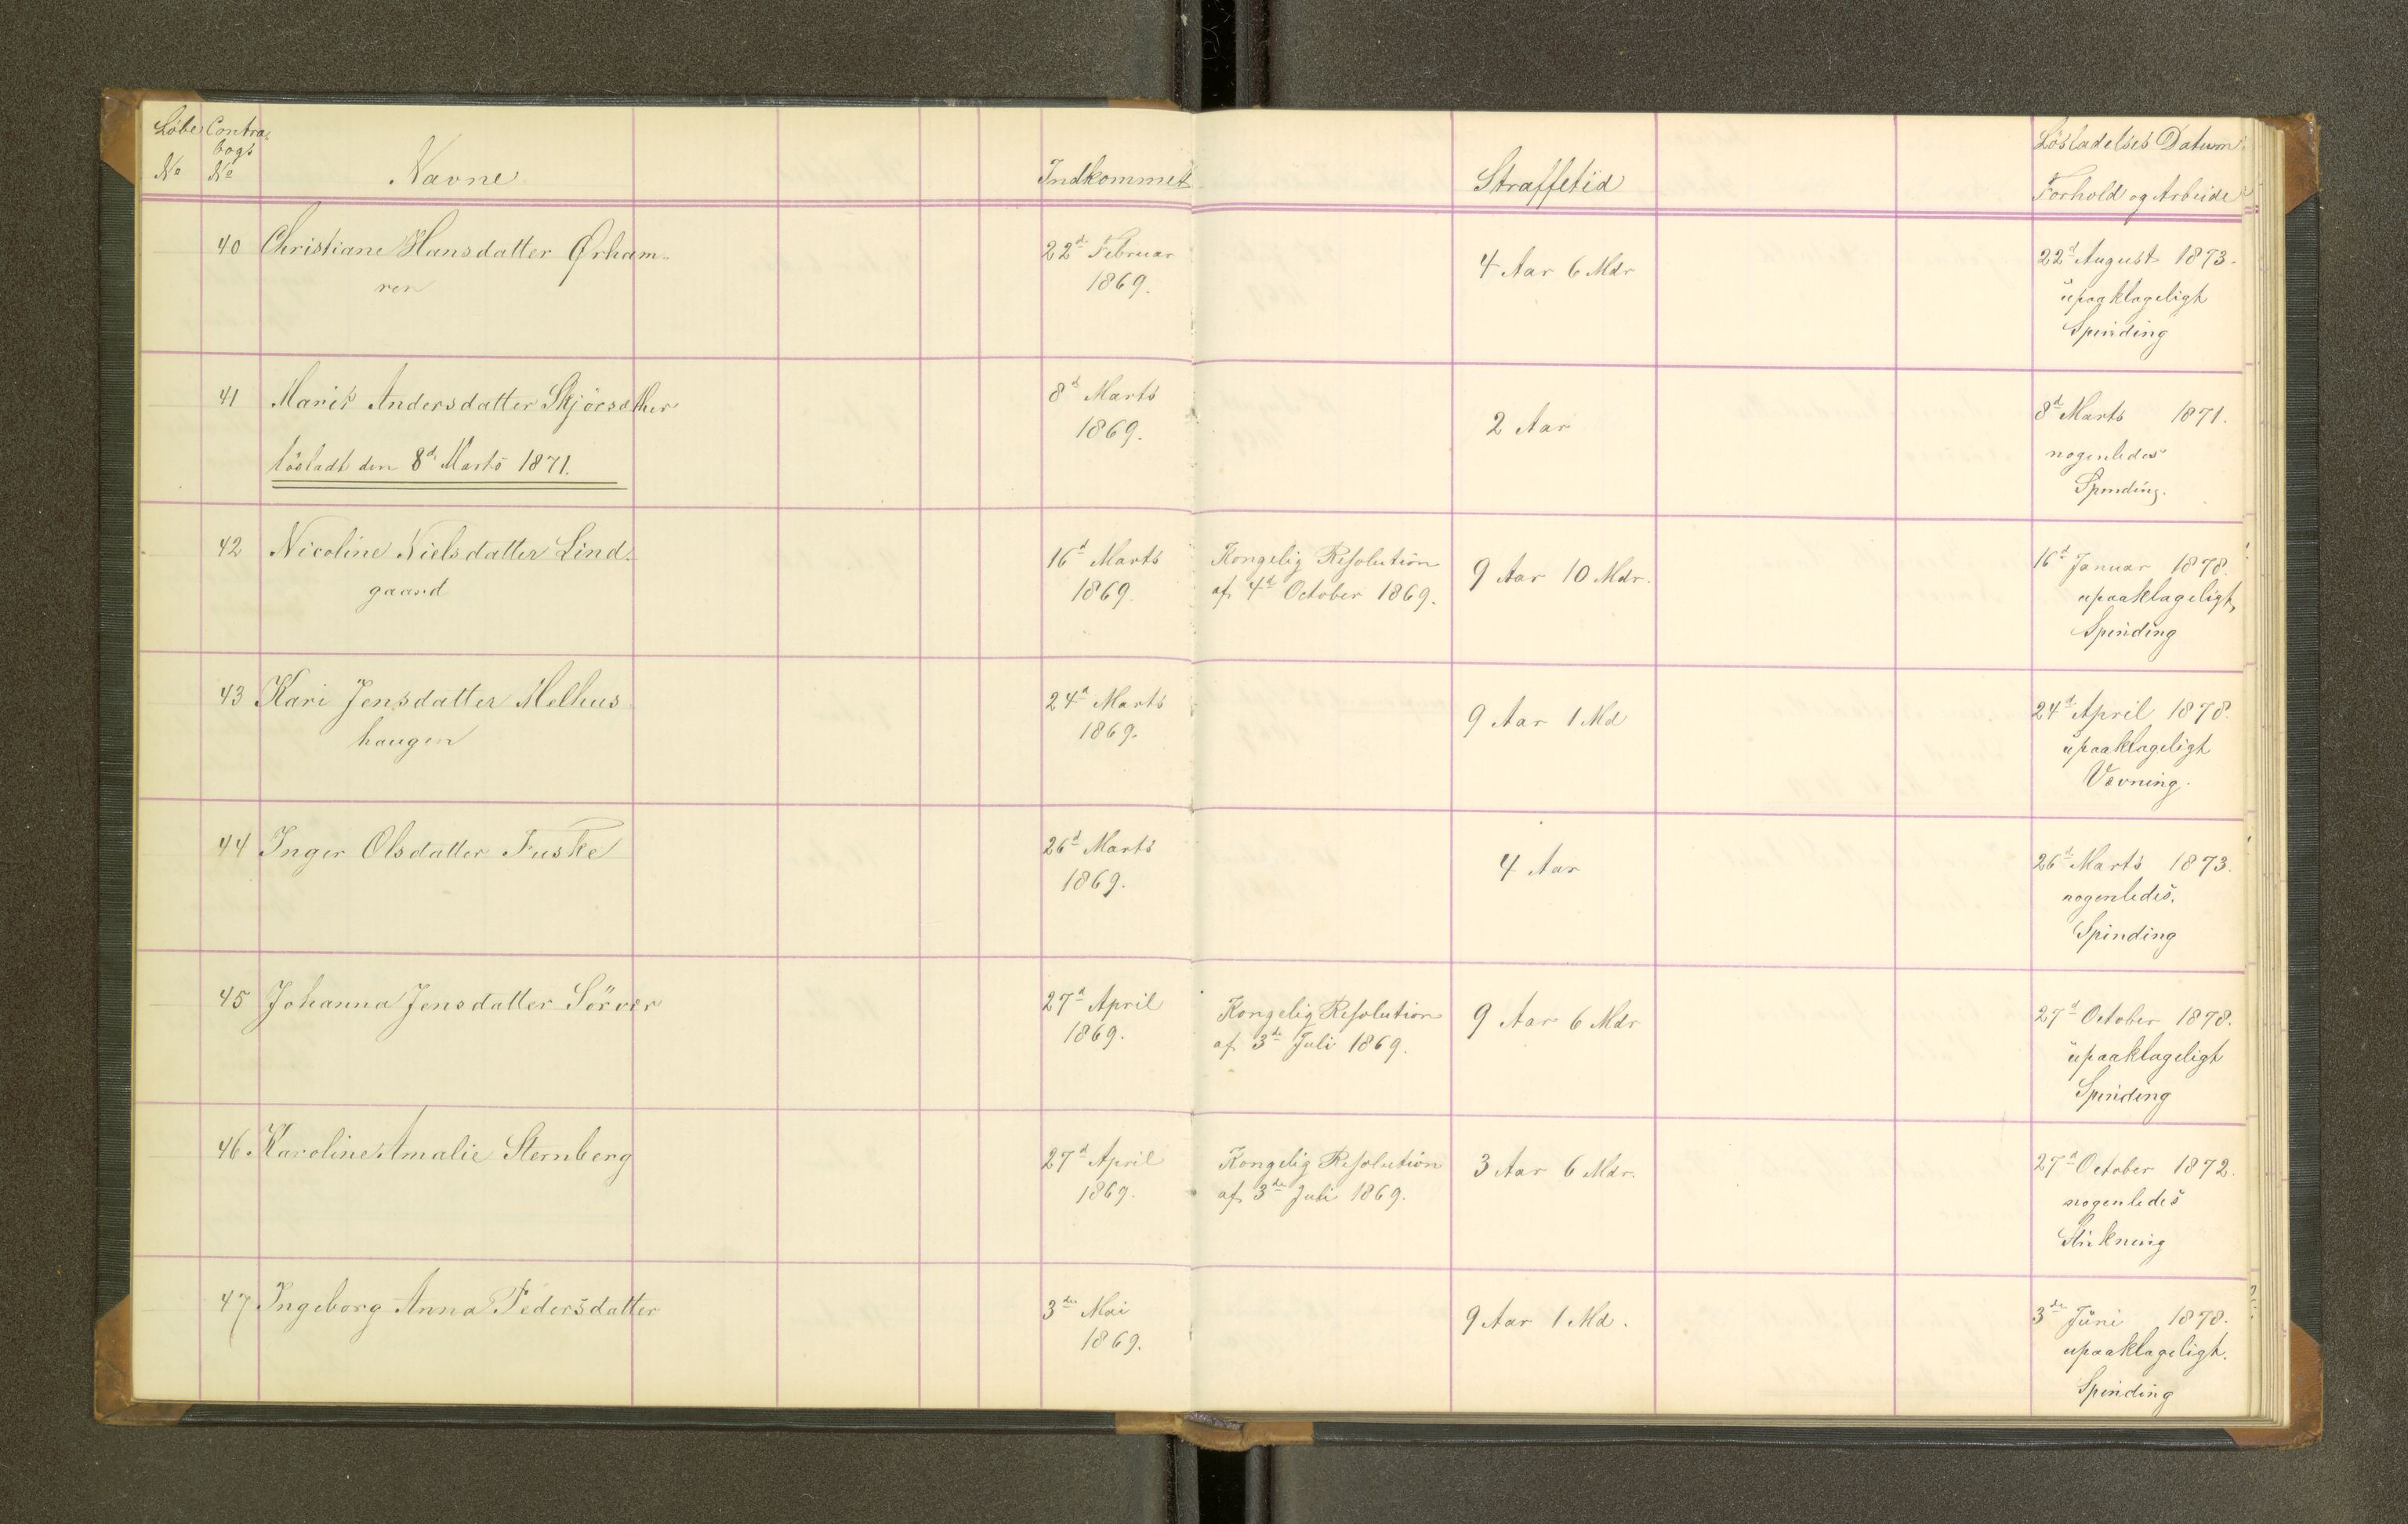 Löbe Contra-
bogs
No No Navne Indkommet Straffetid Lösladelses Datum.
Forhold og Arbeide
40 Christiane Hansdatter Ørham- 22d Februar 4 Aar 6 Mdr 22d August 1873.
ren 1869. upaaklageligt
Spinding
41 Marit Andersdatter Skjörsether 8d Marts 2 Aar 8d Marts 1871.
1869. nogenledes
lösladt den 8d Marts 1871. Spinding.
42 Nicoline Nielsdatter Lind- 16d Marts Kongelig Resolution 9 Aar 10 Mdr. 16d Januar 1878.
gaard 1869. af 4d October 1869. upaaklageligt,
Spinding
43 Kari Jensdatter Melhus 24d Marts 9 Aar 1 Md 24d April 1878.
haugen 1869. upaaklageligt
Vævning.
44 Inger Olsdatter Fuske 26d Marts 4 Aar 26d Marts 1873.
1869. nogenledes.
Spinding
45 Johanna Jensdatter Sörvær 27d April Kongelig Resolution 9 Aar 6 Mdr 27d October 1878.
1869. af 3de Juli 1869. upaaklageligt
Spinding
46 Karoline Amalie Sternberg 27d April Kongelig Resolution 3 Aar 6 Mdr. 27d October 1872.
1869. af 3de Juli 1869. nogenledes
Strikning
47 Ingeborg Anna Pedersdatter 3de Mai 9 Aar 1 Md. 3de Juni 1878.
1869. upaaklageligt.
Spinding